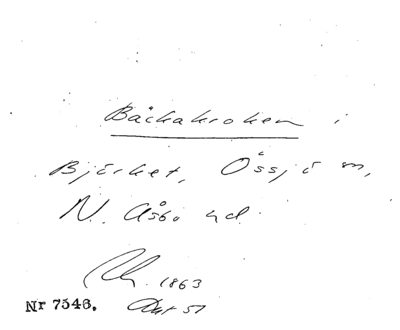 Bäckakroken i
Björket, Össjö sn,
N. Åsbo hd.
1863
Nr 7546. Akt 51